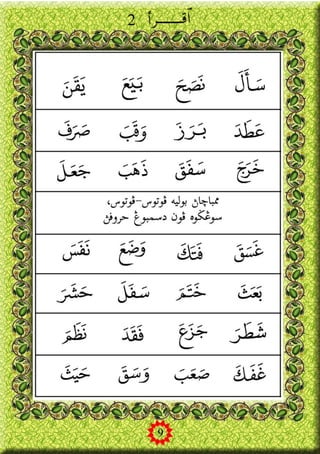 اقـــرأ 2
سَأَلَ نَصَحَ بَيَعَ يَقَنَ
عَطَدَ بَرَزَ وَقَبَ صَرَفَ
خَرَجَ سَفَقَ ذَهَبَ جَعَلَ
ممباچاڽ بوليه ڤوتوس-ڤوتوس،
سوڠݢوه ڤون دسمبوڠ حروفڽ
غَسَقَ فَتَكَ وَضَعَ نَفَسَ
بَعَثَ خَتَمَ سَفَلَ حَشَرَ
شَطَرَ جَزَعَ فَقَدَ نَظَمَ
غَفَكَ صَعَبَ وَسَقَ حَيَثَ
9